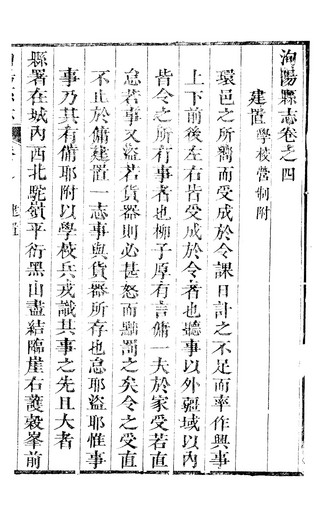 洵陽縣志卷之四
建置學校營制附
環邑之所嚮而受成於令課日計之不足而率作興事
上下前後左右皆受成於令者也聽事以外疆域以內
皆令之所有事者也柳子厚有言傭一夫於家受若直
怠若事又盜若貨器則必甚怒而黜罰之矣令之受直
不止於傭建置一志事與貨器所存也怠耶盜耶惟事
事乃其有備耶附以學校兵戎識其事之先且大者
縣署在城內西北駝嶺平衍黑山盡結臨崖右護穀峯前